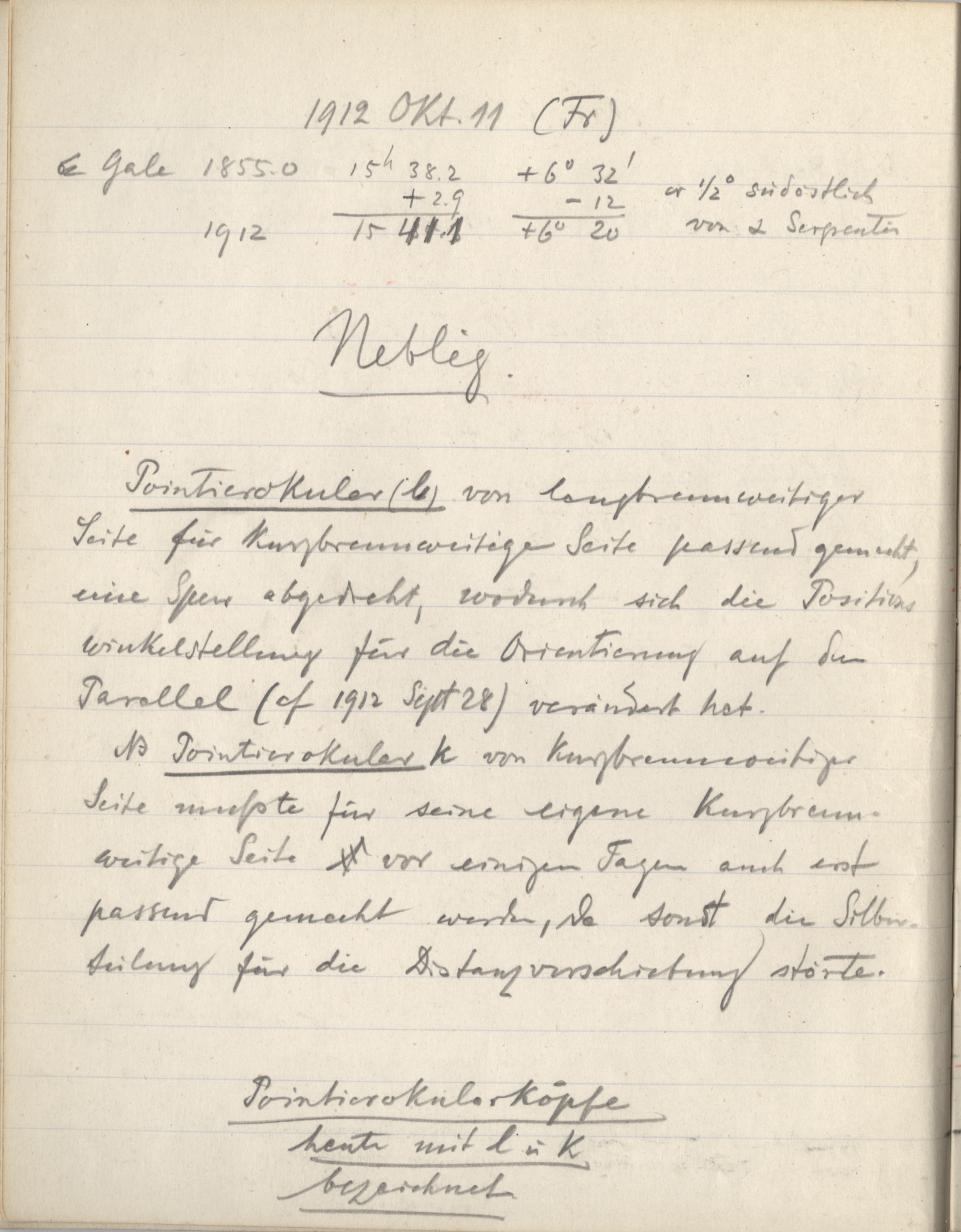 1912 Okt. 11 (Fr)
Gale 1855.0 15h 38.2 +6° 32' cr 1/2° südöstlich
+2.9 -12
1912 15 41.1 +6° 20 von α Serpentis
Neblig.
Pointierokular (l) von langbrennweitiger
Seite für Kurzbrennweitige Seite passend gemacht,
eine Spur abgedreht, wodurch sich die Positions
winkelstellung für die Orientierung auf den
Parallel (cf 1912 Sept 28) verändert hat.
NB Pointierokular K von Kurzbrennweitiger
Seite mußte für seine eigene Kurzbrenn-
weitige Seite vor einigen Tagen auch erst
passend gemacht werden, da sonst die Silber-
teilung für die Distanzverschiebung störte.
Pointierokularköpfe
heute mit l u K
bezeichnet